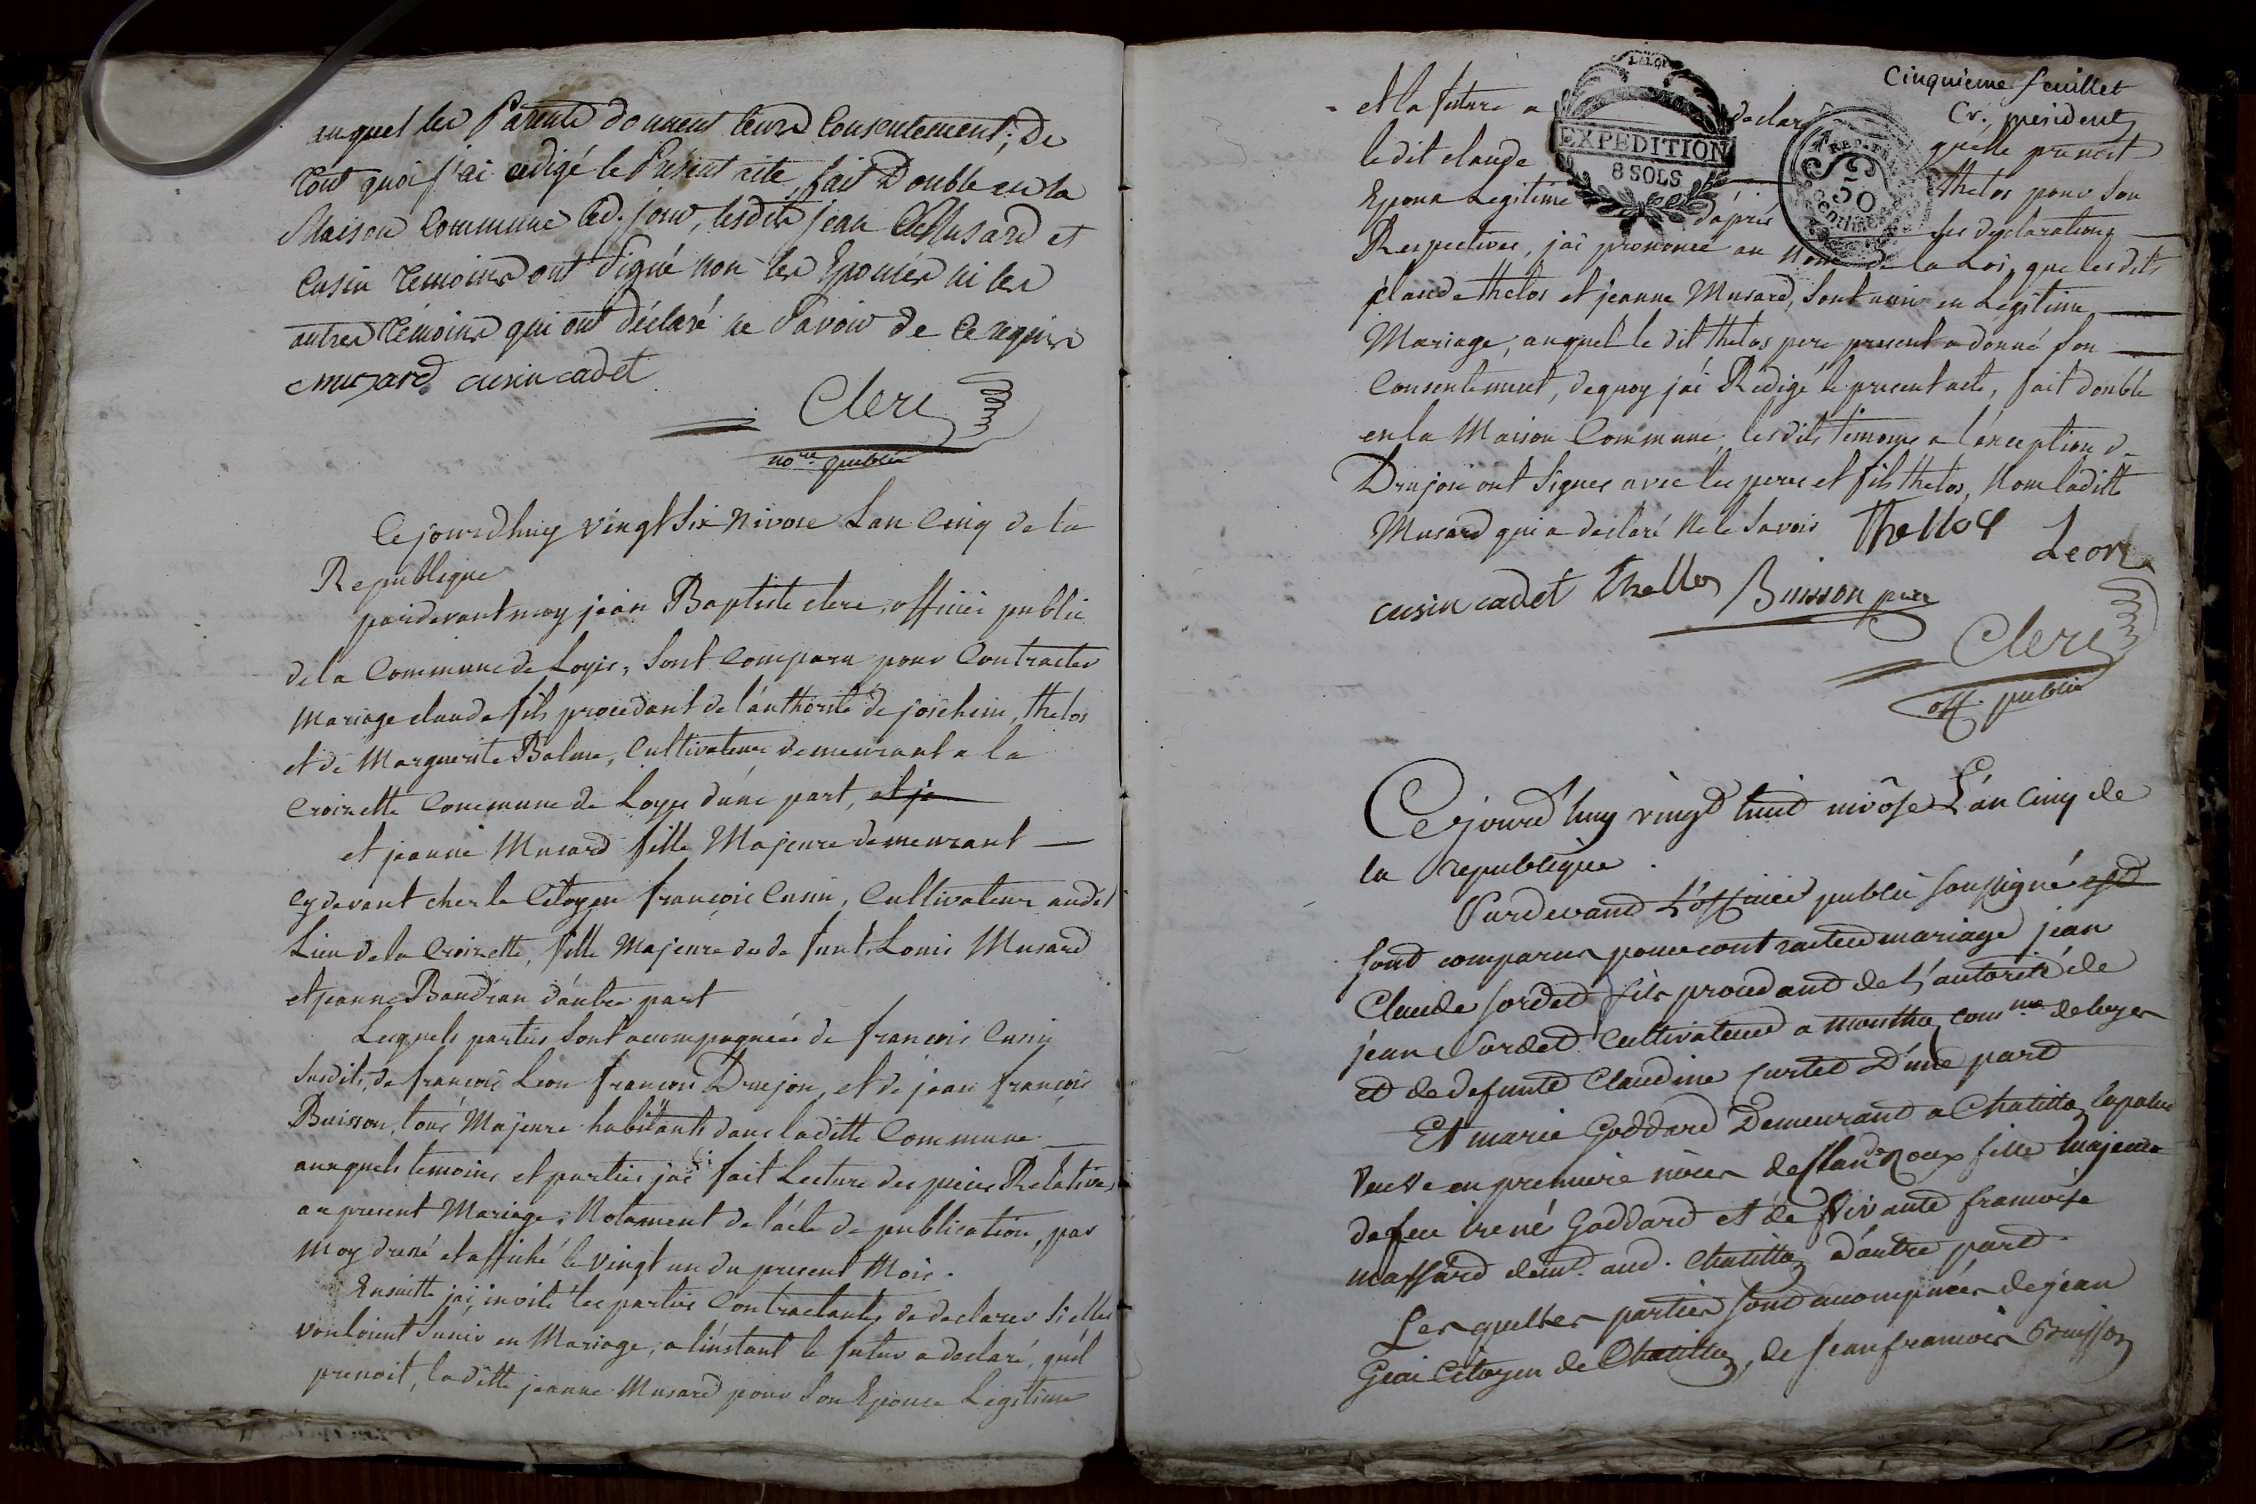 auquel les Parents donnent leurs Consentement, De
tout quoi j'ai redigé le Présent acte, fait Double en la
Maison Commune led. jour, lesdits jean Musard et
Cusin témoins ont signé non les Epousés ni les
autres témoins qui ont déclaré ne Savoir de ce requis
musard cusin cadet
Clerc
publie
Ce jourdhuy vingt Six Nivose Lan Cinq de la
Republique
pardevant moy jean Baptiste clerc, officier public
de la Commune de Loyes, Sont Comparu pour Contracter
Mariage claude fils procedant de l'authorité de joschim, thelos
et de Marguerite Balme, Cultivateur demeurant a la
Croizette Commune de Loyes d'une part, et je
et jeanne Musard fille Majeure demeurant
cydevant chez le Citoyen françois Cusin, Cultivateur audit
Lieu de la Croizette, fille Majeure de defunt Louis Musard
et jeanne Baudran d'autre part
Lesquels parties Sont accompagnées de francois Cusin
Susdit, de francois Leon francois Drujon, et de jean françois
Buisson, tous Majeurs habitants dans laditte Commune
auxquels temoins et parties jai fait Lecture des pieces Relatives
au present Mariage, Notament de l'acte de publication, par
Moy dressé et affiché le vingt un du present Mois.
Ensuitte jai invité les parties Contractantes de declarer Si elles
vouloient S'unir en Mariage, a l'instant le futur a declaré, qu'il
prenoit, laditte jeanne Musard pour Son Epouse Legitime
Cinquieme feuillet
Cr. president
et la future a declaré qu'elle prenoit
ledit claude thelos pour Son
Epoux Legitime d'après les declarations
Respectives, jai prononcé au Nom de la Loi, que lesdits
claude thelos et jeanne Musard, Sont unis en Legitime
Mariage, auquel le dit thelos pere present a donné Son
Consentement, dequoy jai Redigé le present acte, fait double
en la Maison Commune, lesdits temoins a l'exception de
Drujon ont Signes avec les peres et fils thelos, Non laditte
Musard qui a declaré Ne le Savoir Thellos Leon
cusin cadet Thellos Buisson pere
Clerc
off. publie
LA LOI
EXPEDITION
8 SOLS
REP. FRA
50
Centimes
Cejourd'huy vingt huit nivôse L'an Cinq de
la republique.
Pardevant L'officier public soussigné est
sont comparus pour contracter mariage jean
Claude Sordet fils procedant de L'autorité de
jean Sordet Cultivateur a monthoz comme de loyes
et de defunte Claudine Curtet D'une part
Et marie Goddard Demeurant a Chatillon lapalud
Veuve en premiere nôces de Claude Roux fille majeure
de feu irené Goddard et de Vivante françoise
massard demt. aud. Chatillon d'autre part.
Les quelles parties sont acompnées de jean
Geai Citoyen de Chatillon, de jean francois Buisson